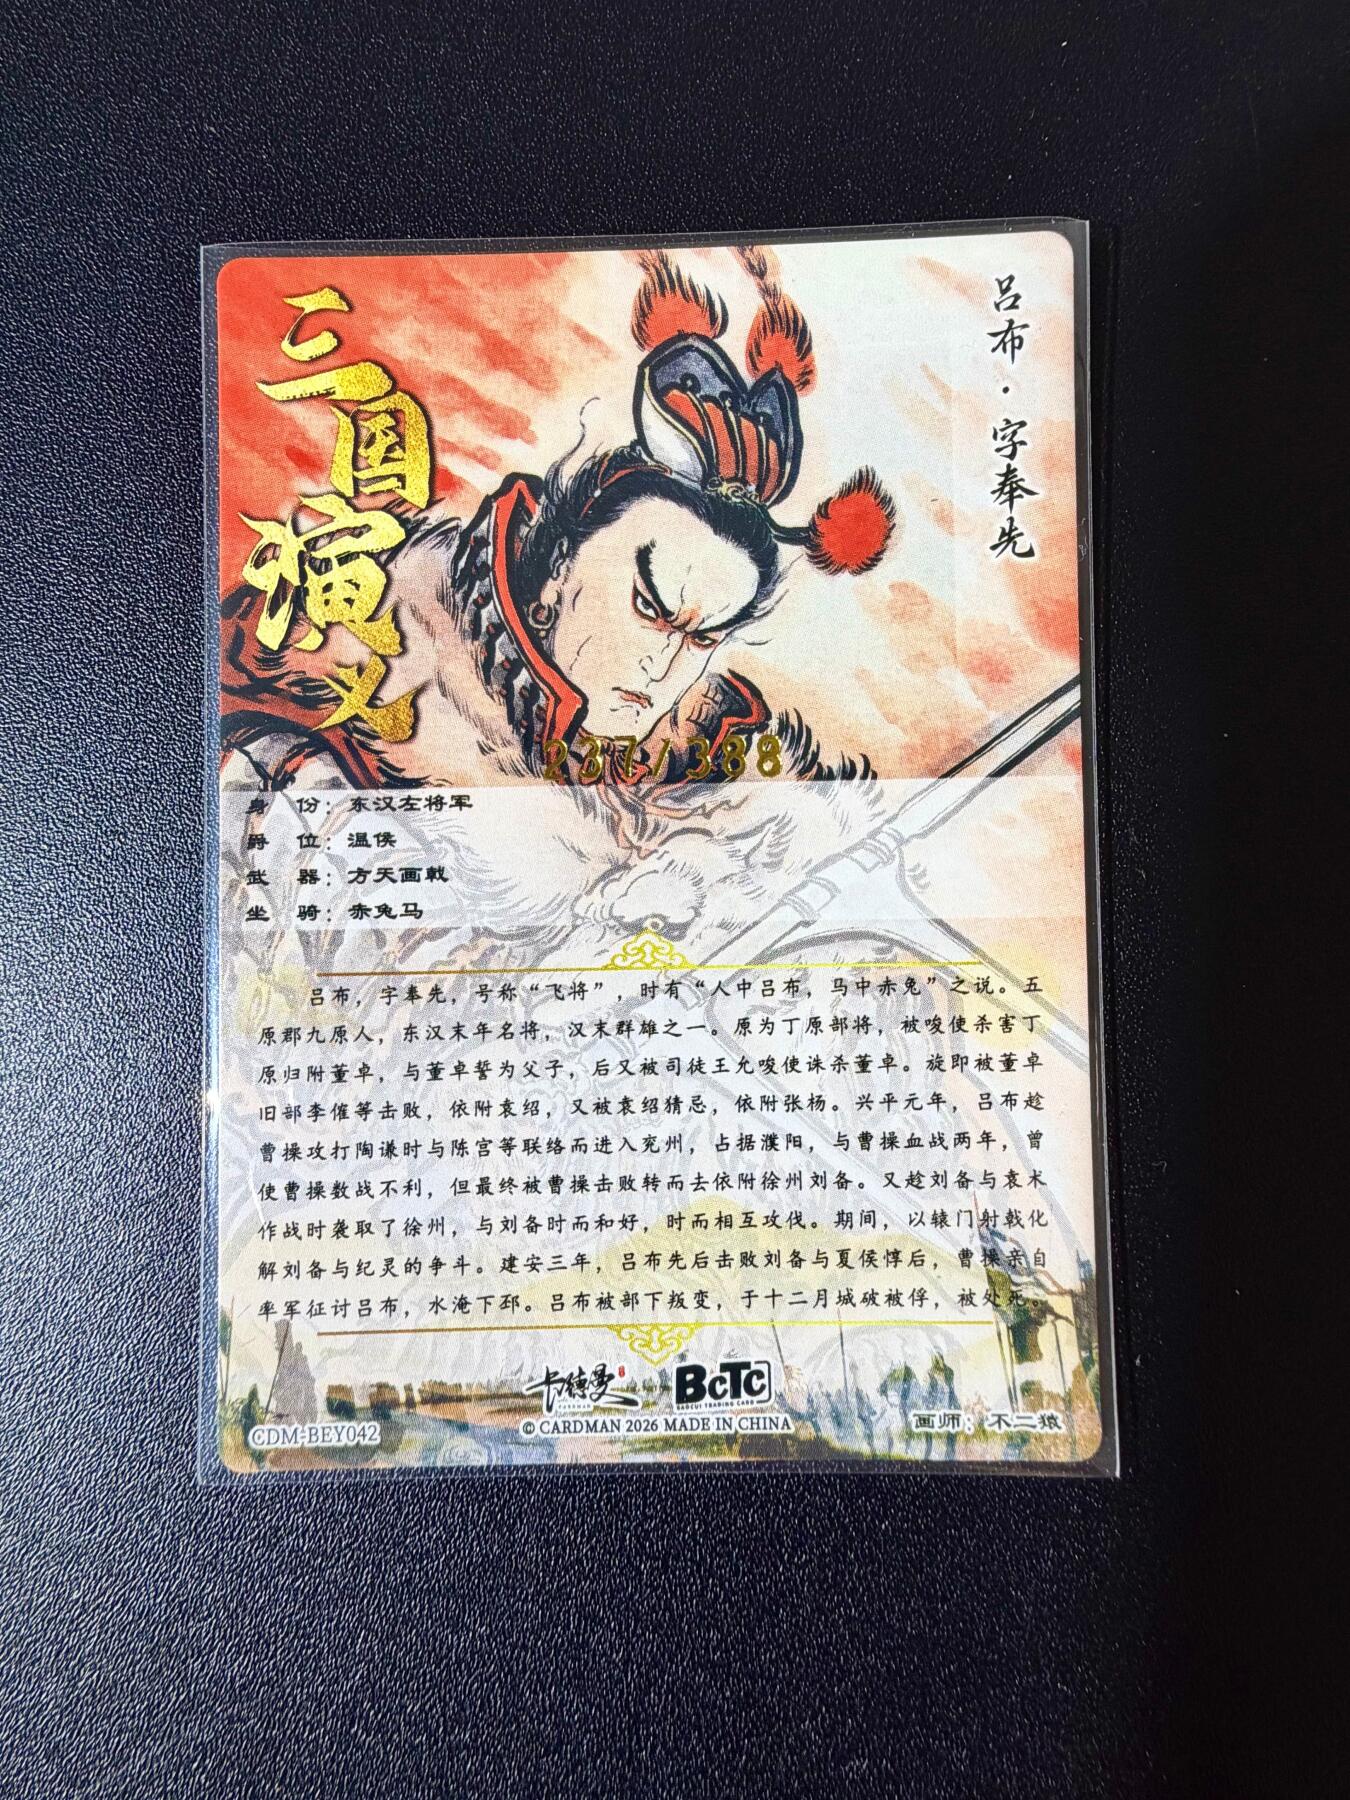 三国演义
吕布·字奉先
237/388
身 份：东汉左将军
爵 位：温侯
武 器：方天画戟
坐 骑：赤兔马
吕布，字奉先，号称“飞将”，时有“人中吕布，马中赤兔”之说。五
原郡九原人，东汉末年名将，汉末群雄之一。原为丁原部将，被唆使杀害丁
原归附董卓，与董卓誓为父子，后又被司徒王允唆使诛杀董卓。旋即被董卓
旧部李傕等击败，依附袁绍，又被袁绍猜忌，依附张杨。兴平元年，吕布趁
曹操攻打陶谦时与陈宫等联络而进入兖州，占据濮阳，与曹操血战两年，曾
使曹操数战不利，但最终被曹操击败转而去依附徐州刘备。又趁刘备与袁术
作战时袭取了徐州，与刘备时而和好，时而相互攻伐。期间，以辕门射戟化
解刘备与纪灵的争斗。建安三年，吕布先后击败刘备与夏侯惇后，曹操亲自
率军征讨吕布，水淹下邳。吕布被部下叛变，于十二月城破被俘，被处死。
卡德曼
CARDMAN
BCTC
BAOCUI TRADING CARD
CDM-BEY042
© CARDMAN 2026 MADE IN CHINA
画师：不二猿